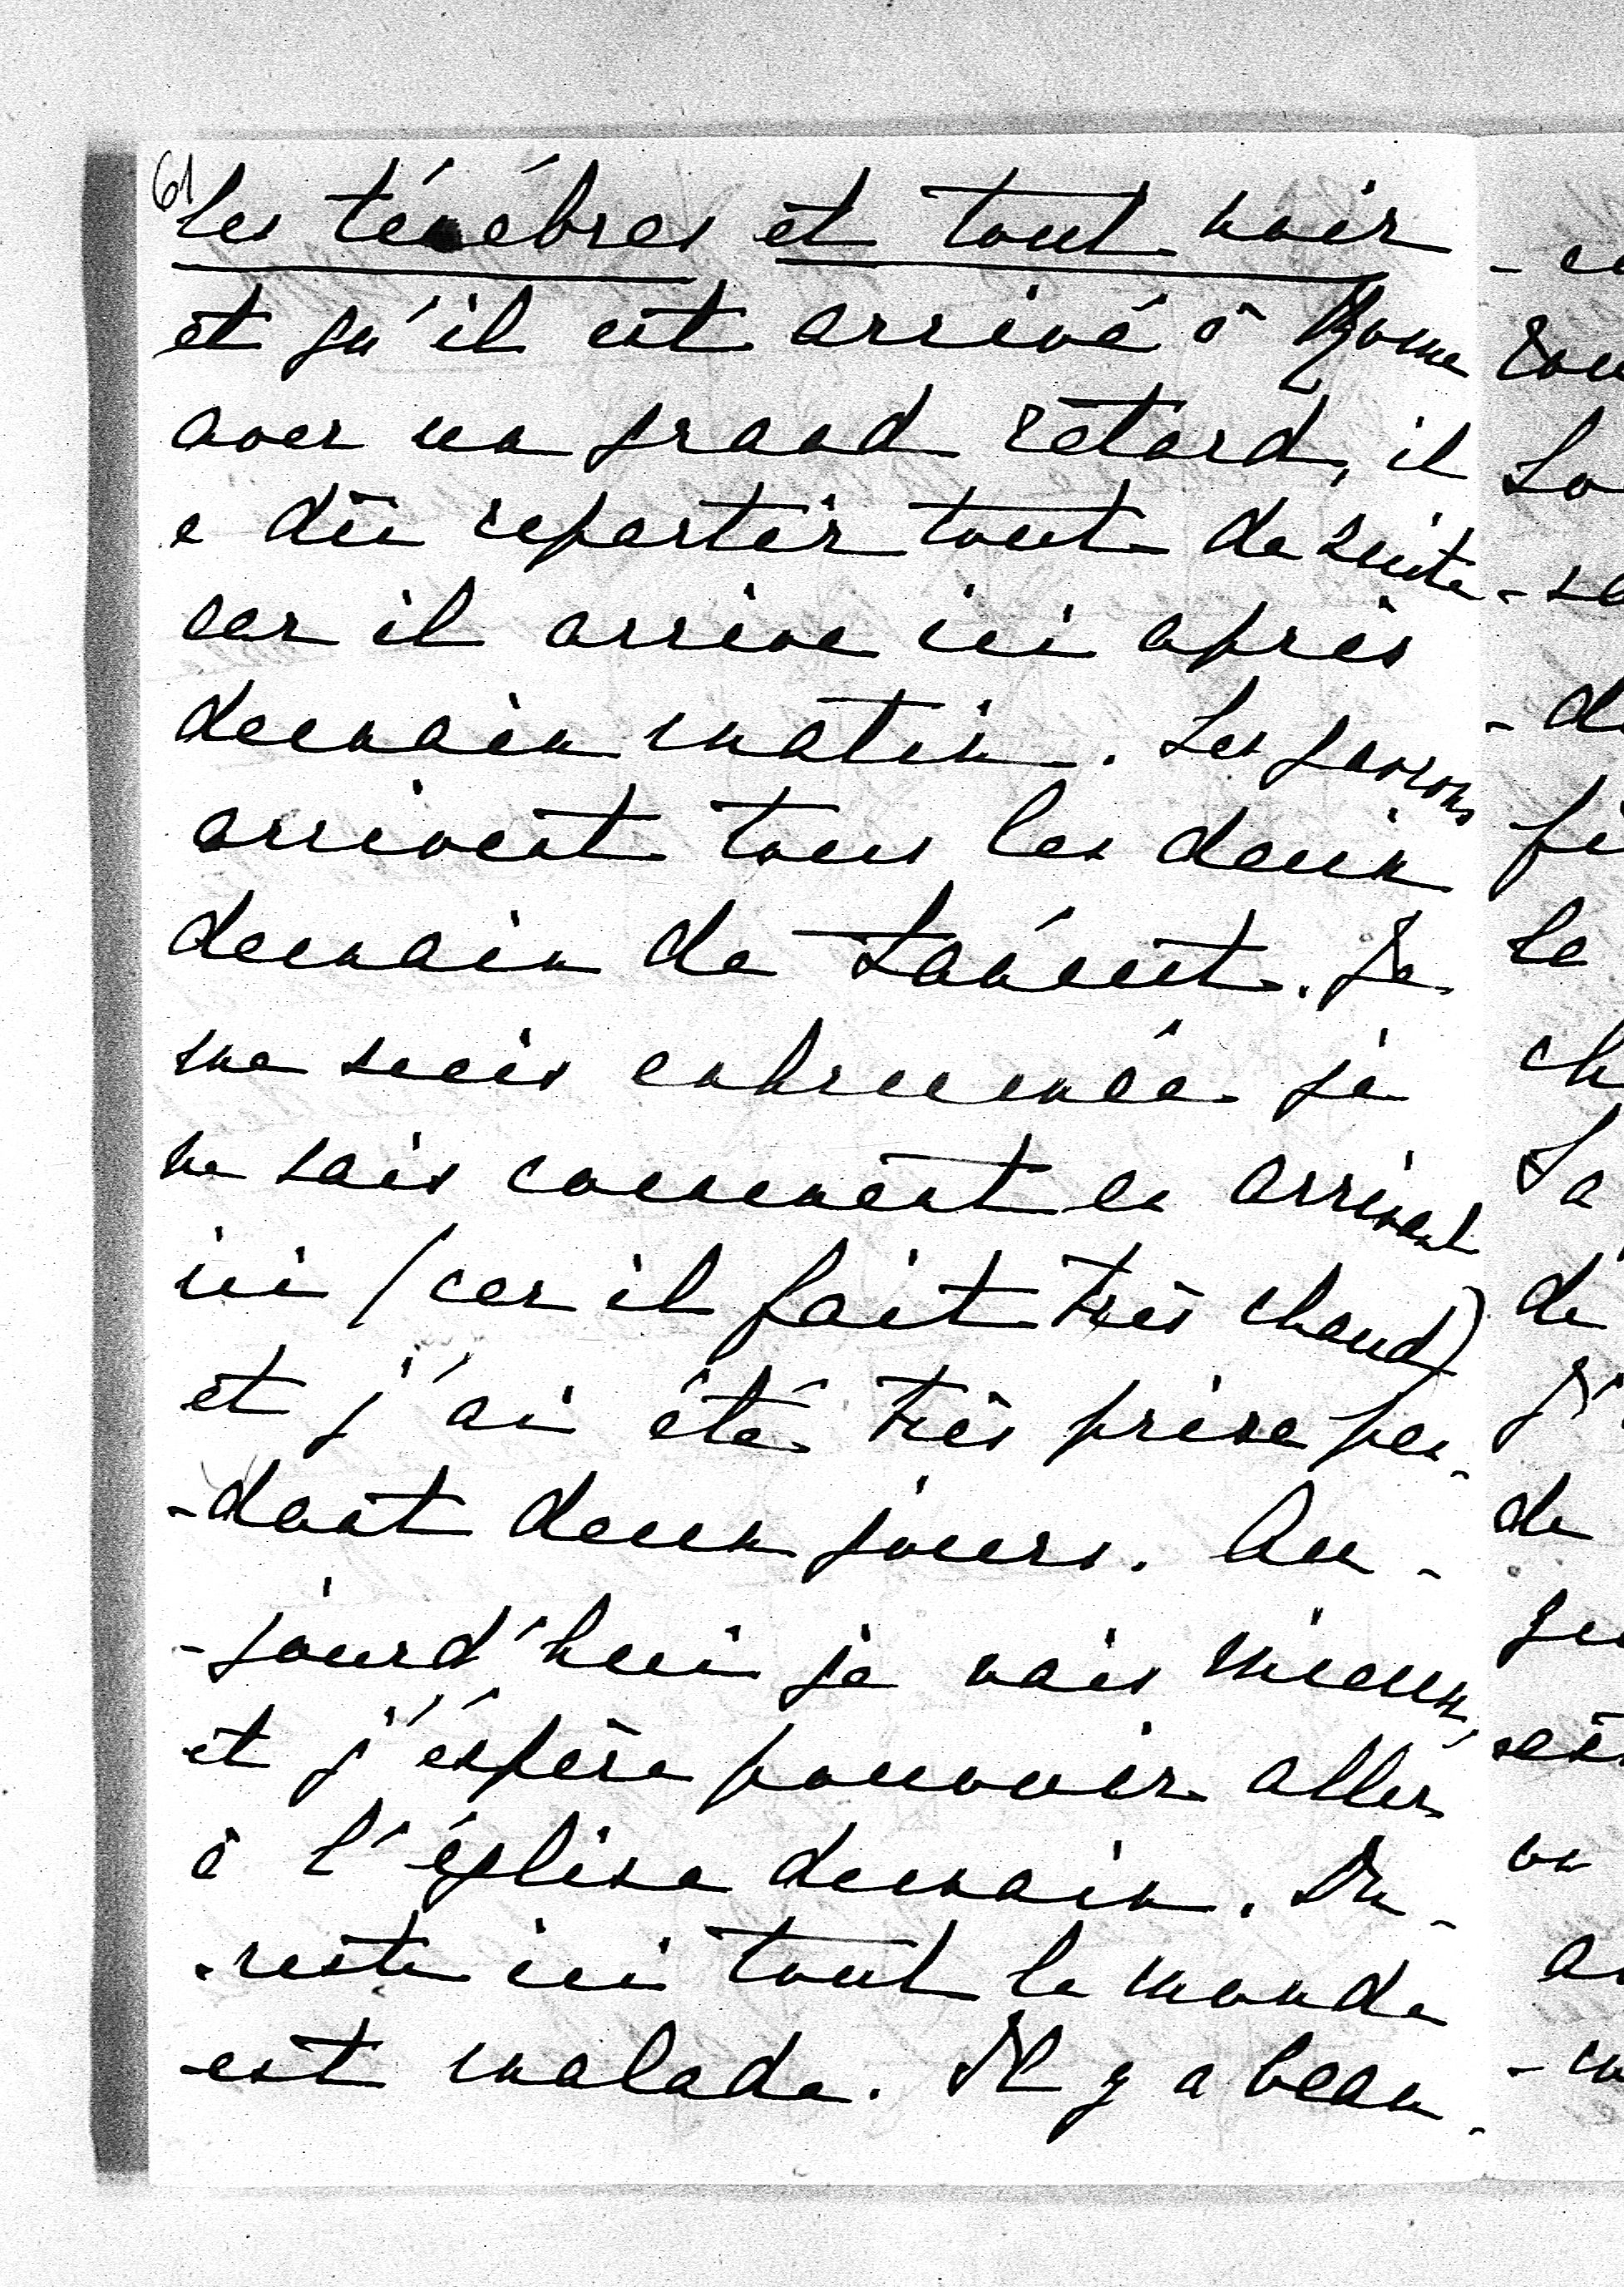 61
les ténébres et tout noir
et qu'il est arrivé à Rome
avec un grand retard, il
a dû repartir tout de suite
car il arrive ici après
demain matin. Les garçons
arrivent tous les deux
demain de . Je
me suis enhrumée je
ne sais comment en arrivant
ici (car il fait très chaud)
et j'ai été très prise pen-
-dant deux jours. Au-
-jourd'hui je vais mieux,
et j'éspère pouvoir aller
à l'église demain. Du-
-reste ici tout le monde
est malade. Il y a beau-